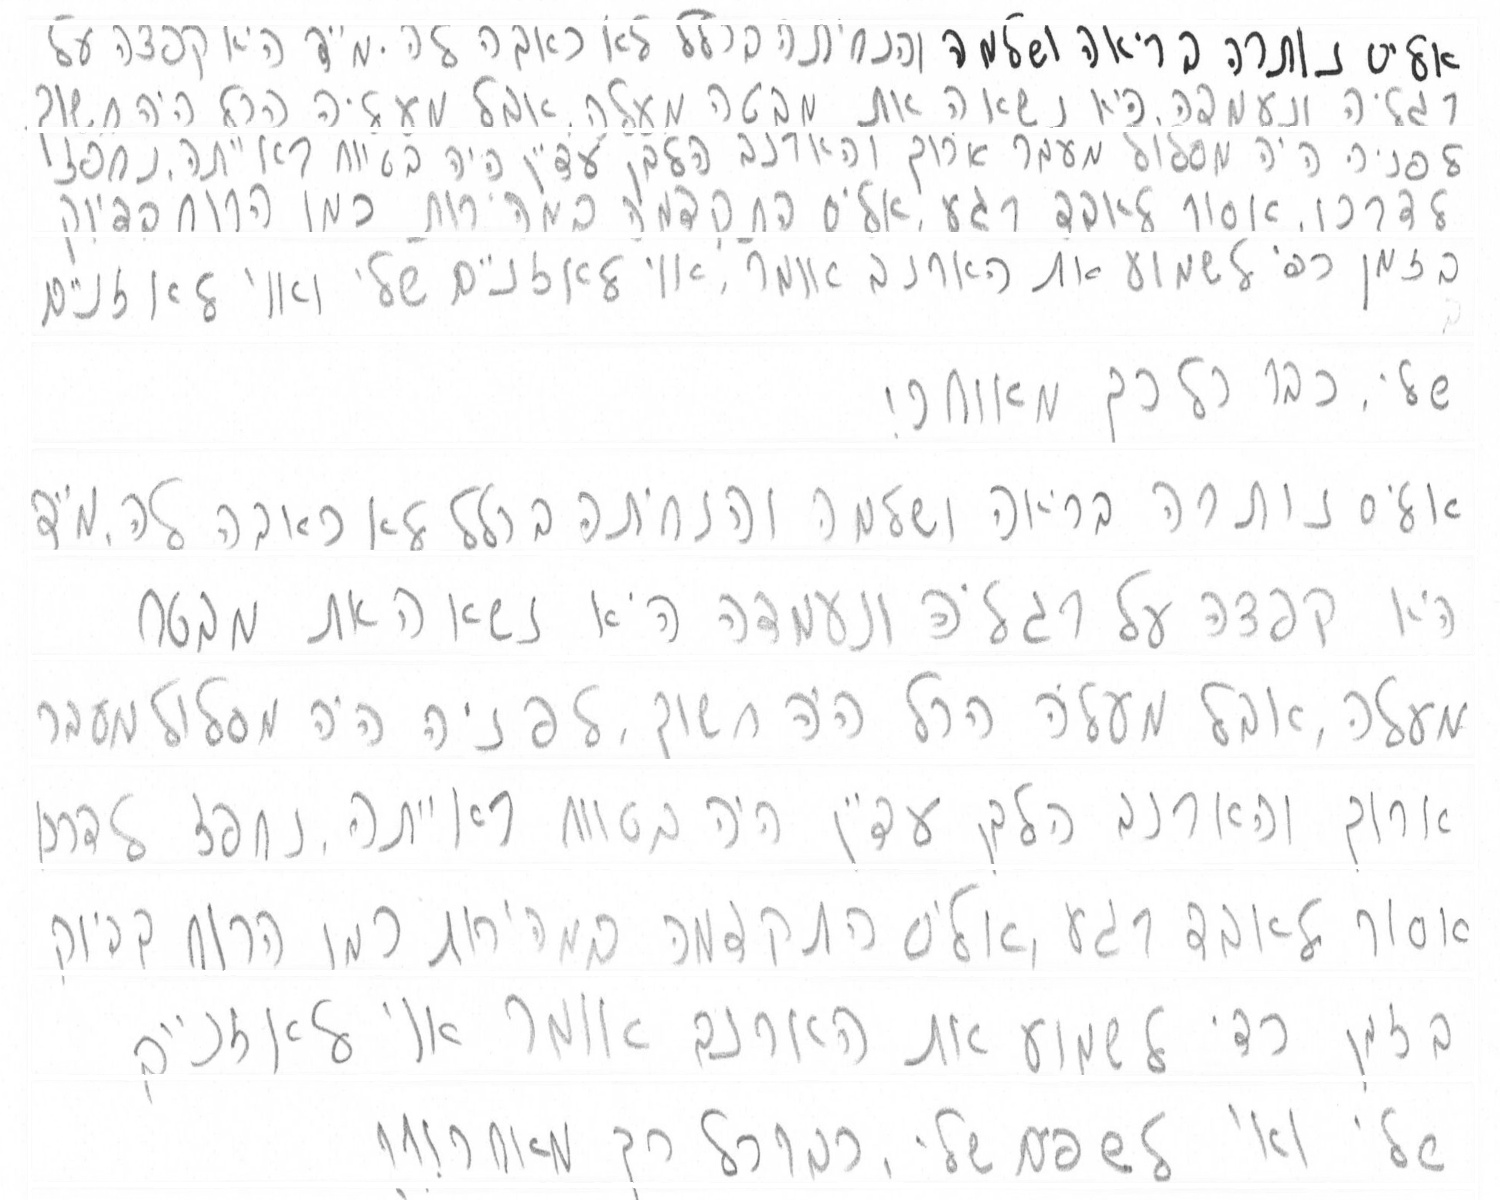 אליס נותרה בריאה ושלמה והנחיתה בכלל לא כאבה לה. מייד היא קפצה על
רגליה ונעמדה. היא נשאה את מבטה מעלה, אבל מעליה הכל היה חשוך
לפניה היה מסלול מעבר ארוך והארנב הלבן עדיין היה בטווח ראייתה, נחפזו
לדרכו, אסור לאבד רגע, אליס התקדמה במהירות כמו הרוח בדיוק
בזמן כדי לשמוע את הארנב אוומר, אווי לאוזניים שלי ואווי לאוזניים
שלי, כבר כל כך מאוחר!
אליס נותרה בריאה ושלמה והנחיתה בכלל לא כאבה לה. מייד
היא קפצה על רגליה ונעמדה היא נשאה את מבטה
מעלה, אבל מעליה הכל היה חשוך, לפניה היה מסלול מעבר
ארוך והארנב הלבן עדיין היה בטווח ראייתה, נחפז לדרכו
אסור לאבד רגע, אליס התקדמה במהירות כמו הרוח בדיוק
בזמן כדי לשמוע את הארנב אוומר אוי לאוזניים
שלי ואוי לשפם שלי, כבר כל כך מאוחר